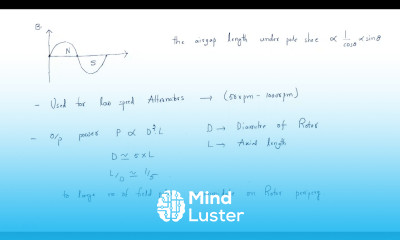 B
N
S
the airgap length under pole shoe ∝ 1/cosθ ∝ sinθ
- Used for low speed Alternators → (50 rpm - 1000 rpm)
- o/p power P ∝ D²L D → Diameter of Rotor
L → Axial length
D ≃ 5 × L
L/D ≃ 1/5
to large no of field on Rotor
Mind
Luster